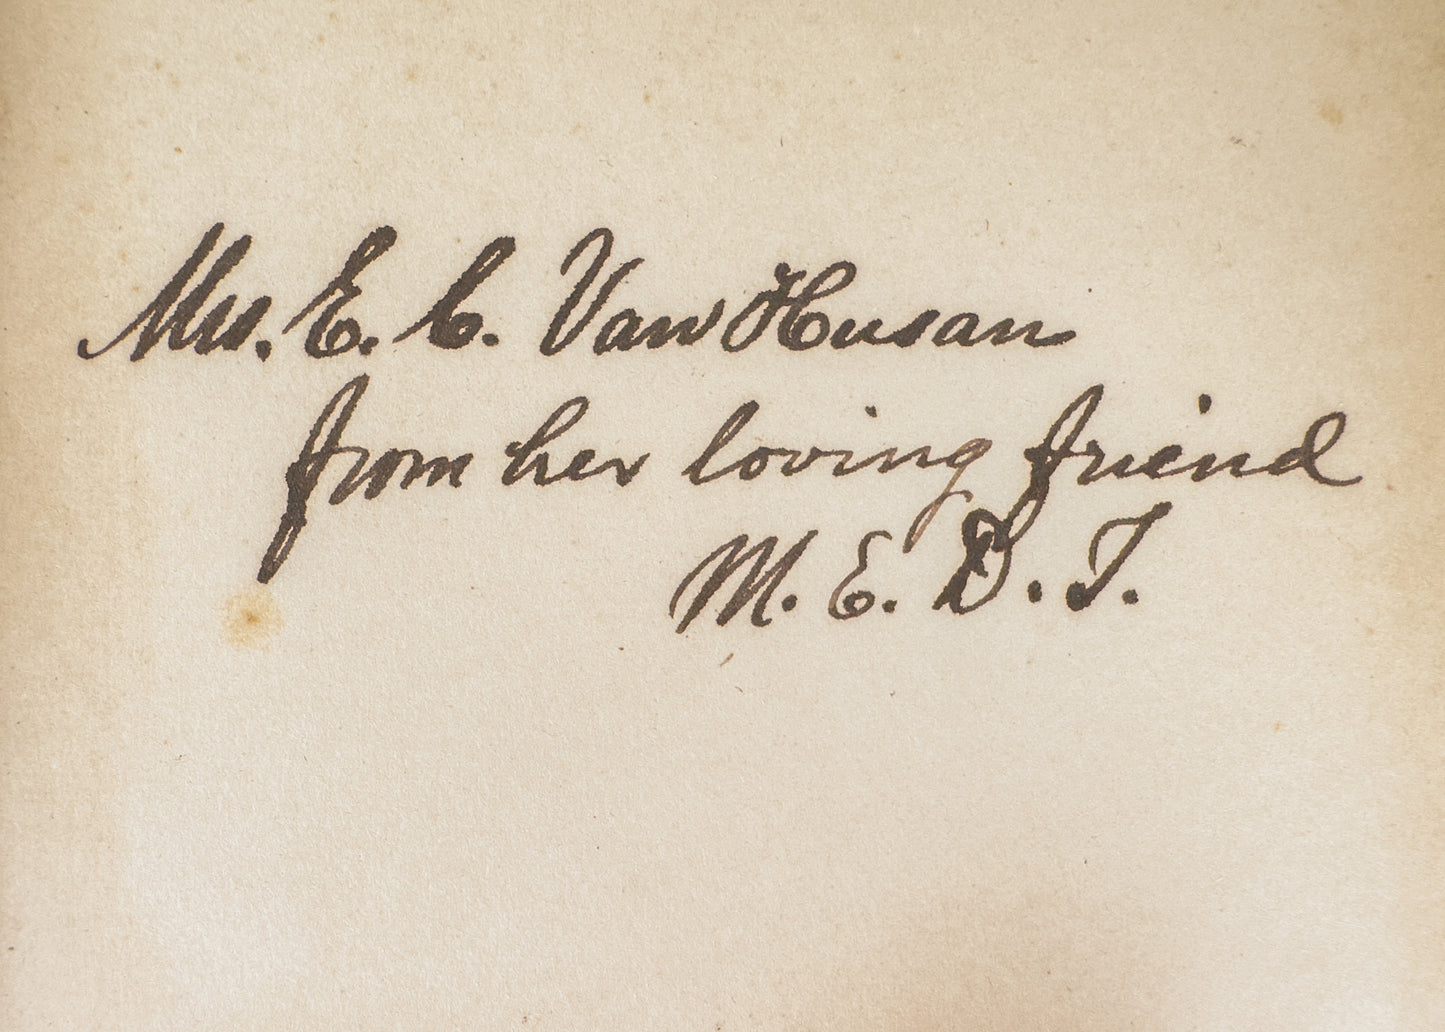 Mrs. E. C. Van Husan
from her loving friend
M. E. D. T.